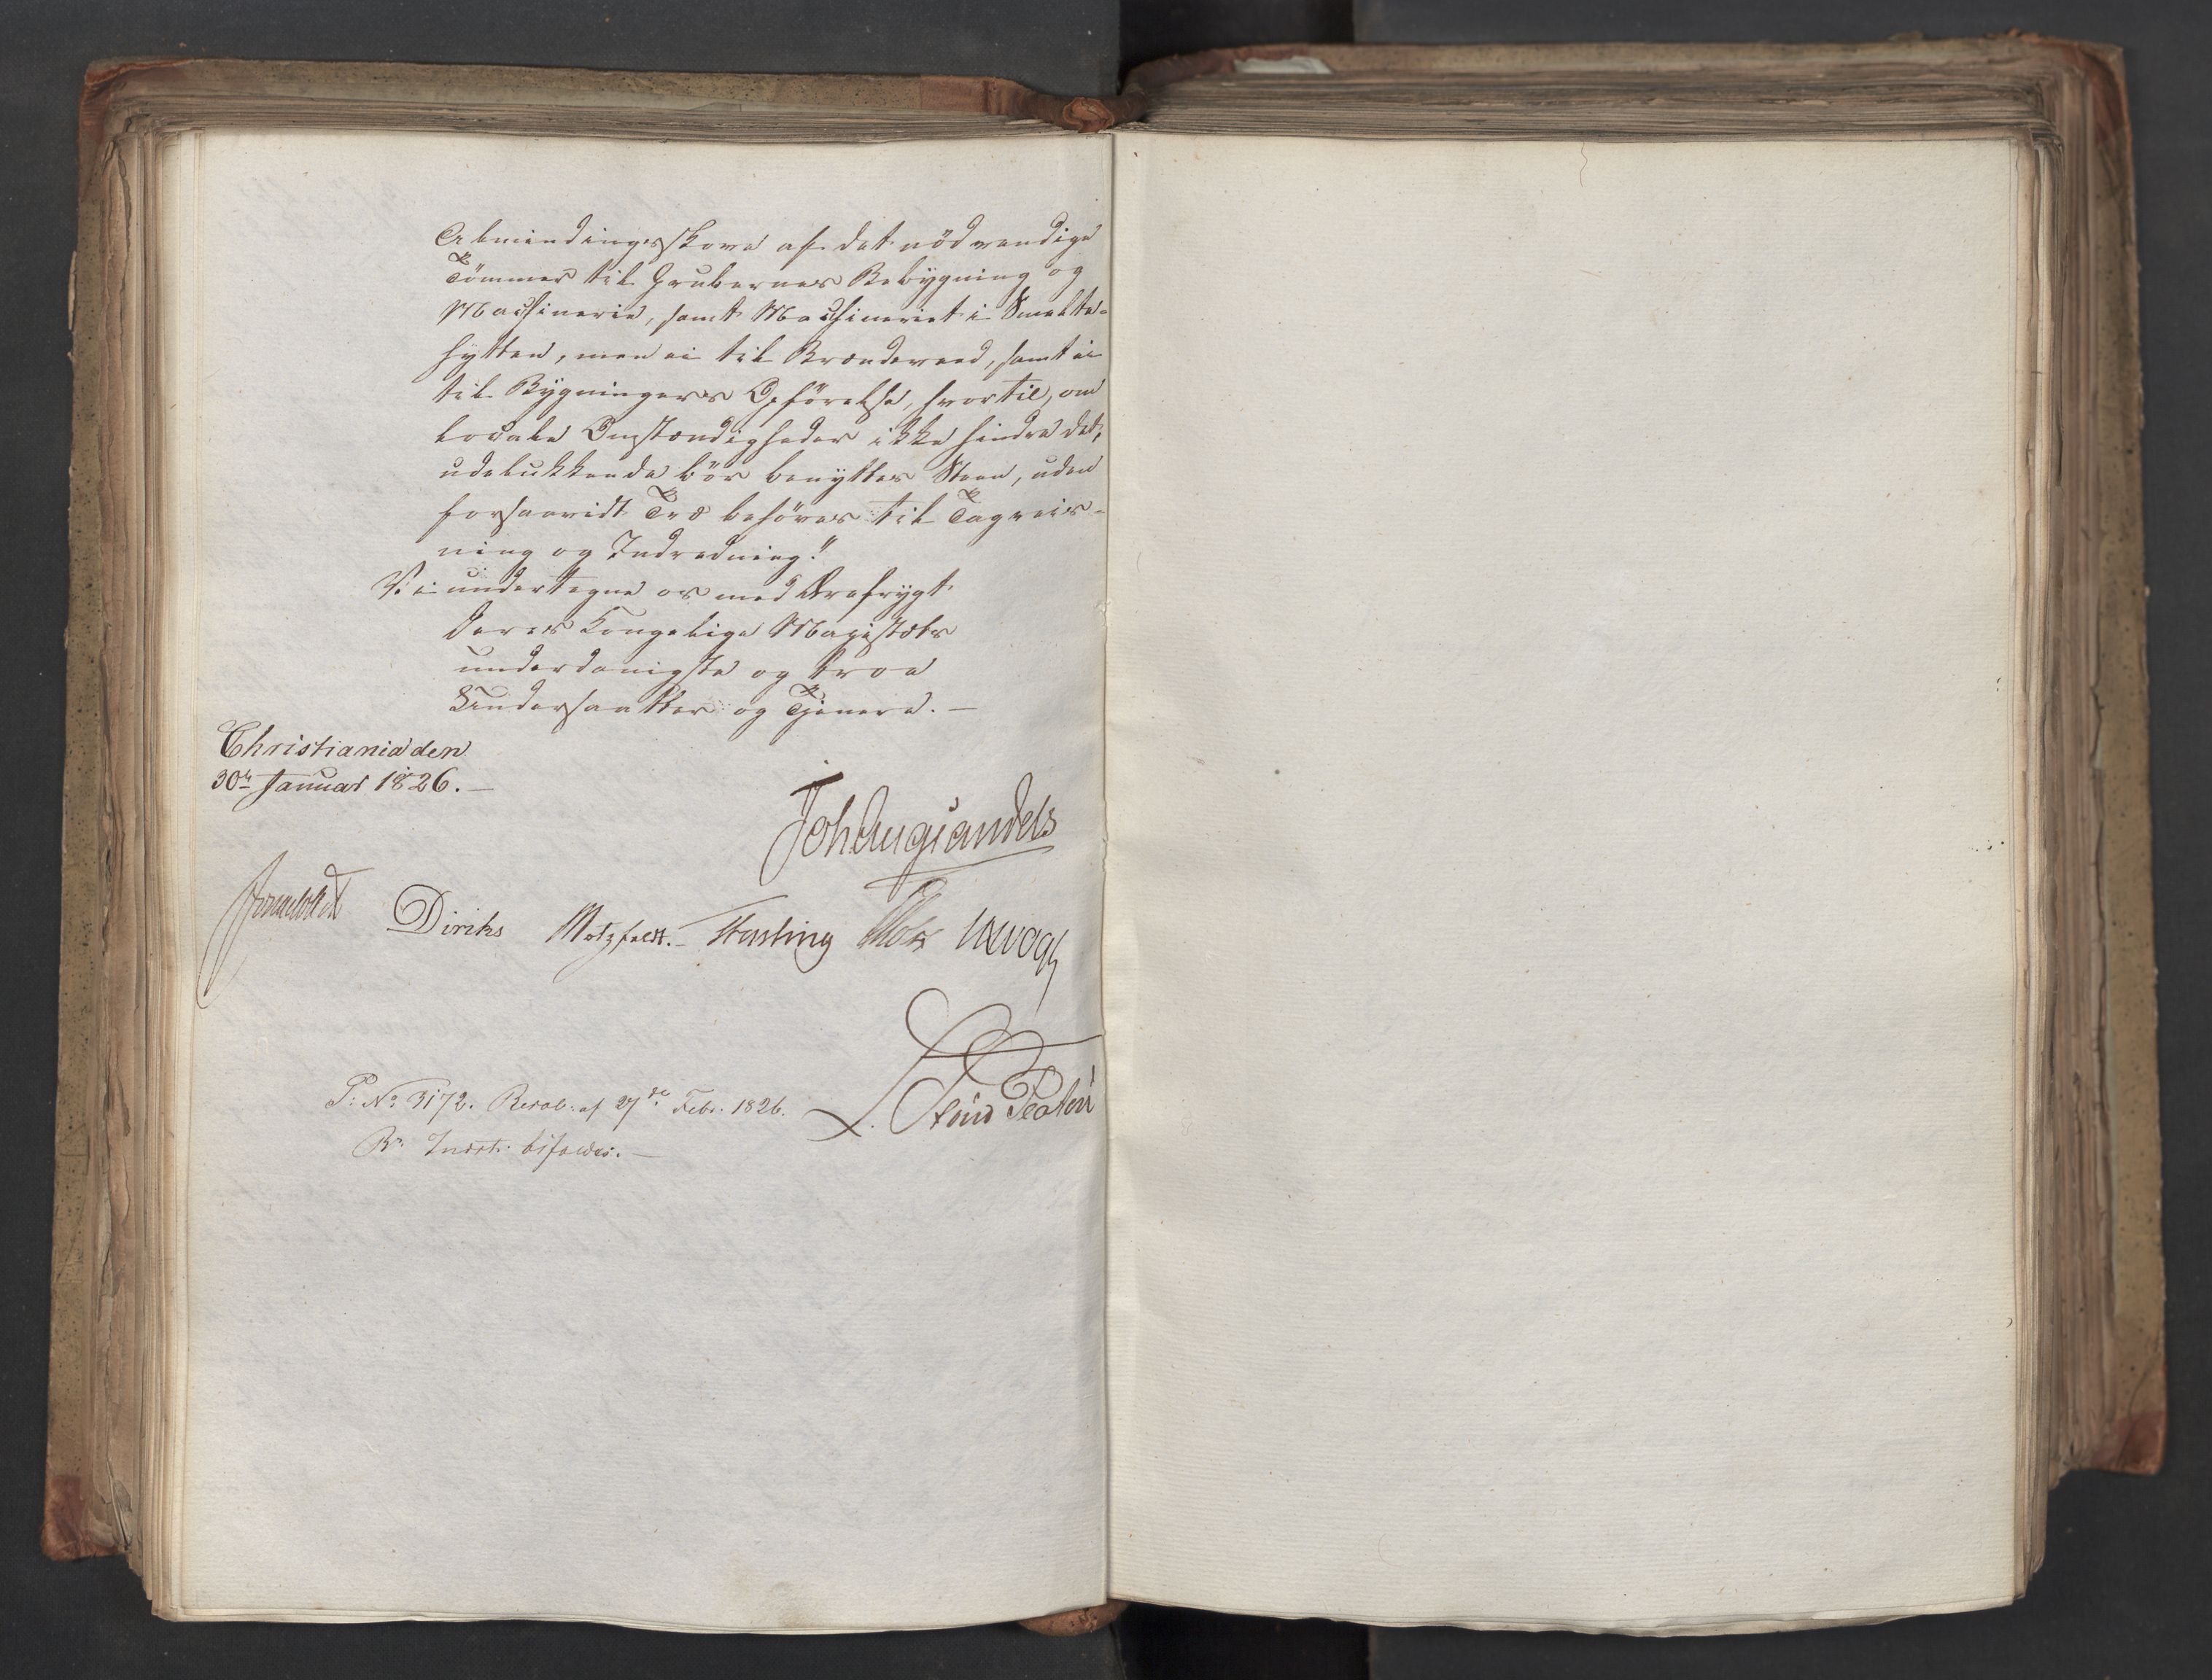 Almindingsskove af det nödvendige
Tömmer til Grubernes Bebygning og
Machinerie, samt Machineriet i Smelte-
hytten, men ei til Brændeveed, samt ei
til Bygningers Opförelse, hvortil, om
locale Omstændigheder ikke hindre det,
udelukkende bör benyttes Steen, uden
forsaavidt Træ behöves til Tagreis-
ning og Indredning."
Vi undertegne os med Ærefrygt
Deres Kongelige Majestæts
underdanigste og troe
Undersaatter og Tjenere. —
Christiania den
30te Januar 1826. —
Joh Aug Sandels
Diriks Motzfeldt. Fasting Holst Vogt
P: No 3172. Resol: af 27de Febr. 1826.
Rs Indst. bifaldes. —